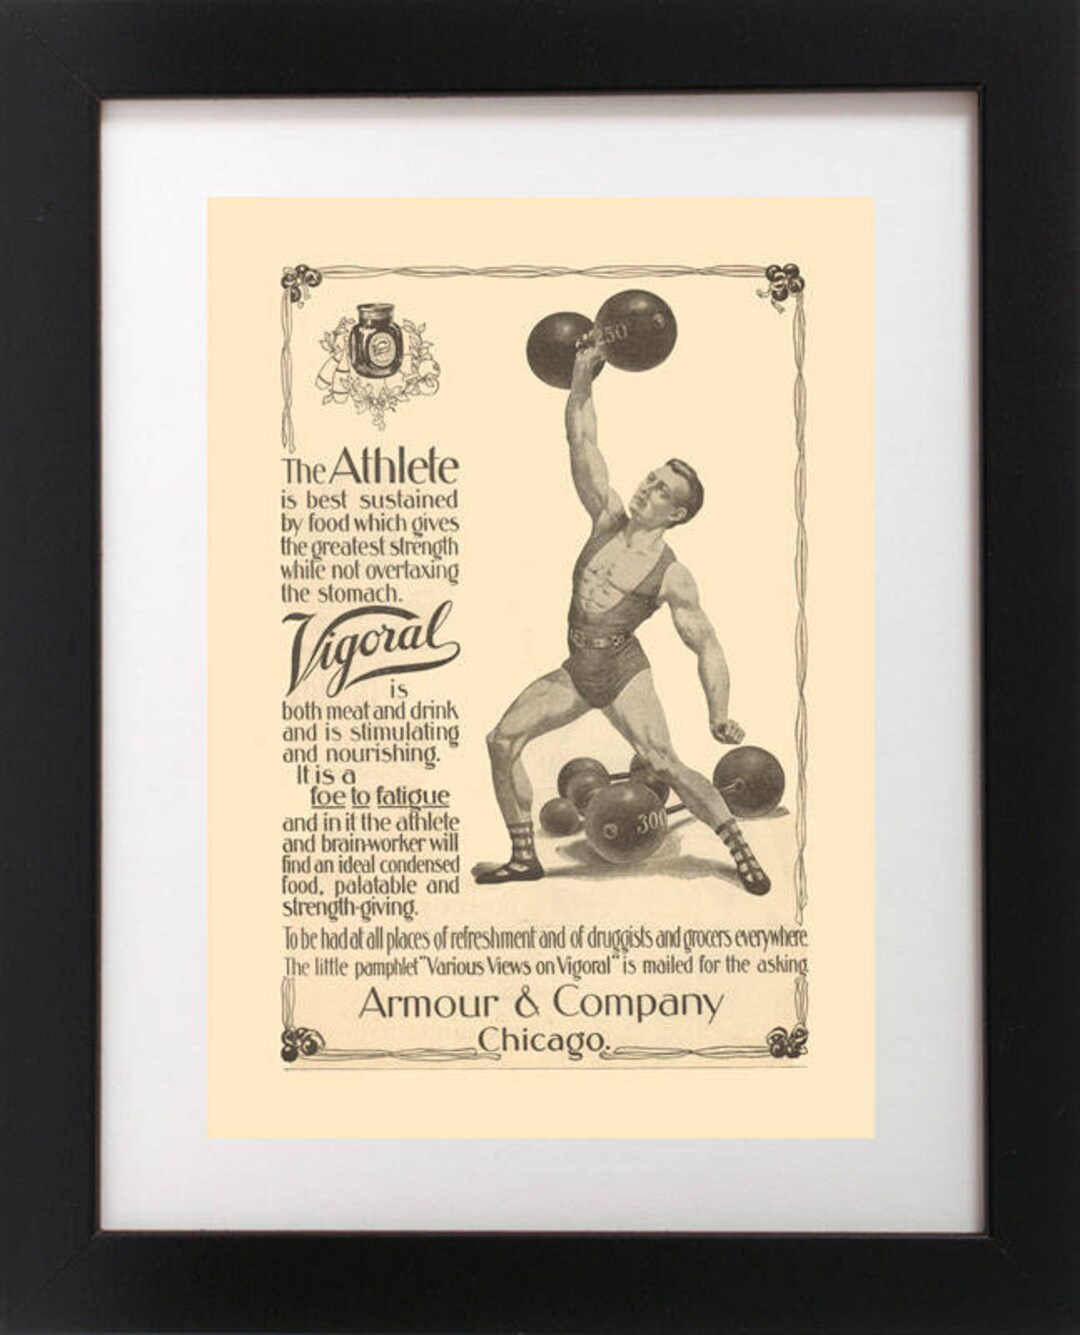 250
The Athlete
is best sustained
by food which gives
the greatest strength
while not overtaxing
the stomach.
Vigoral
is
both meat and drink
and is stimulating
and nourishing.
It is a
foe to fatigue
and in it the athlete
and brain-worker will
find an ideal condensed
food, palatable and
strength-giving.
300
To be had at all places of refreshment and of druggists and grocers everywhere.
The little pamphlet "Various Views on Vigoral" is mailed for the asking
Armour & Company
Chicago.